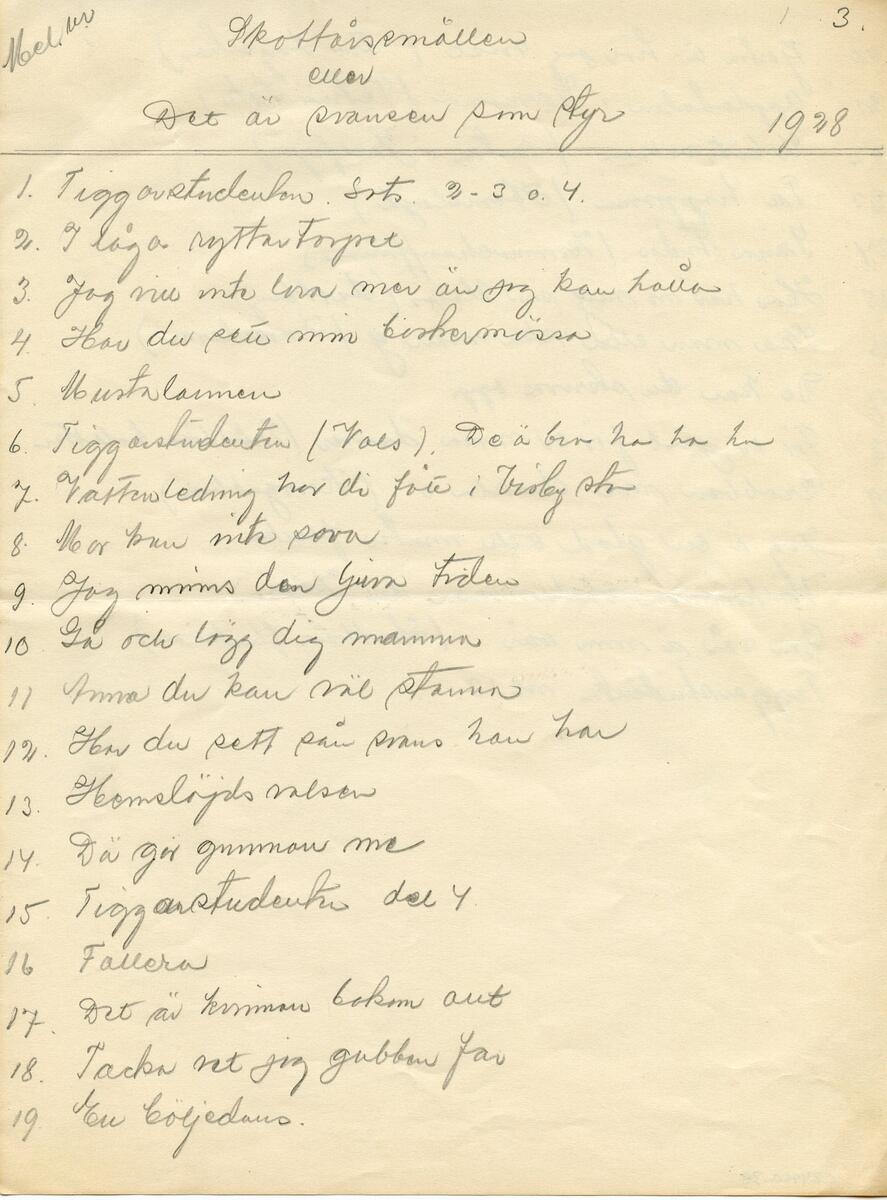 Mel. nr
3.
Skottårsmällen
eller
Det är svansen som styr 1928
1. Tiggarstudenten. Sats. 2-3 o. 4.
2. I låga ryttartorpet
3. Jag vill inte lova mer än jag kan hålla
4. Har du sett min biskermössa
5 Mustalainen
6. Tiggarstudenten (Vals). De ä bra ha ha ha
7. Vattenledning har di fått i Visby sta
8. Mor kan inte sova
9. Jag minns den ljuva tiden
10 Gå och lägg dig mamma
11 Anna du kan väl stanna
12. Har du sett sån svans han har
13. Hemslöjdsvalsen
14. Dä gör gumman me
15. Tiggarstudenten del 4
16 Fallera
17. Det är kvinnan bakom allt
18. Tacka vet jag gubben far
19. En böljedans.